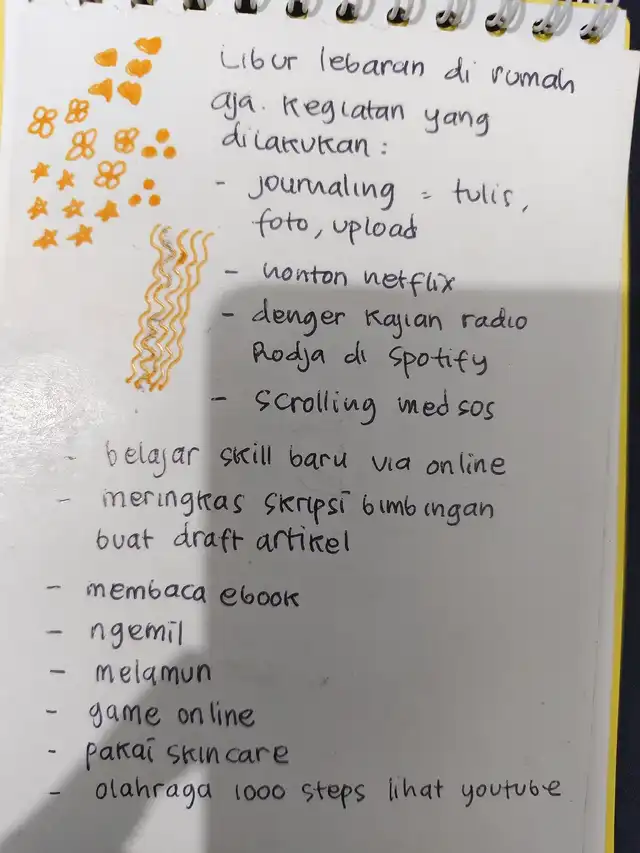 Libur lebaran di rumah
aja. Kegiatan yang
dilakukan :
- journaling = tulis,
foto, upload
- nonton netflix
- denger kajian radio
Rodja di Spotify
- scrolling medsos
- belajar skill baru via online
- meringkas skripsi bimbingan
buat draft artikel
- membaca ebook
- ngemil
- melamun
- game online
- pakai skincare
- olahraga 1000 steps lihat youtube